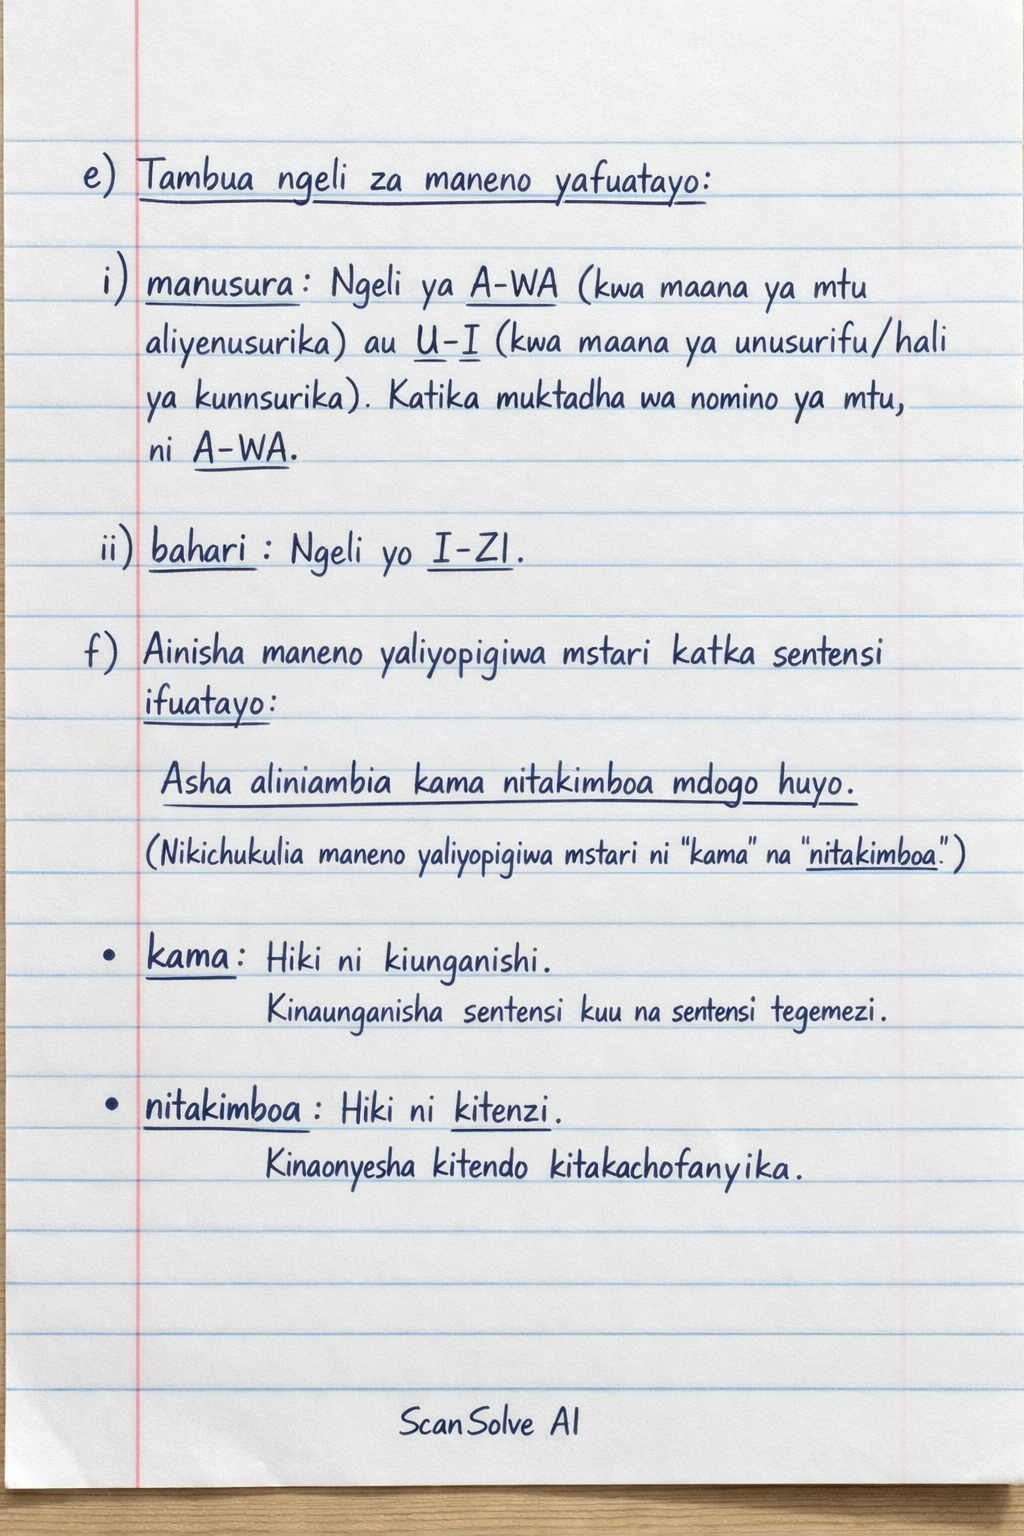 e) Tambua ngeli za maneno yafuatayo:
i) manusura: Ngeli ya A-WA (kwa maana ya mtu
aliyenusurika) au U-I (kwa maana ya unusurifu/hali
ya kunnsurika). Katika muktadha wa nomino ya mtu,
ni A-WA.
ii) bahari: Ngeli yo I-ZI.
f) Ainisha maneno yaliyopigiwa mstari katka sentensi
ifuatayo:
Asha aliniambia kama nitakimboa mdogo huyo.
(Nikichukulia maneno yaliyopigiwa mstari ni "kama" na "nitakimboa.")
• kama: Hiki ni kiunganishi.
Kinaunganisha sentensi kuu na sentensi tegemezi.
• nitakimboa: Hiki ni kitenzi.
Kinaonyesha kitendo kitakachofanyika.
ScanSolve AI